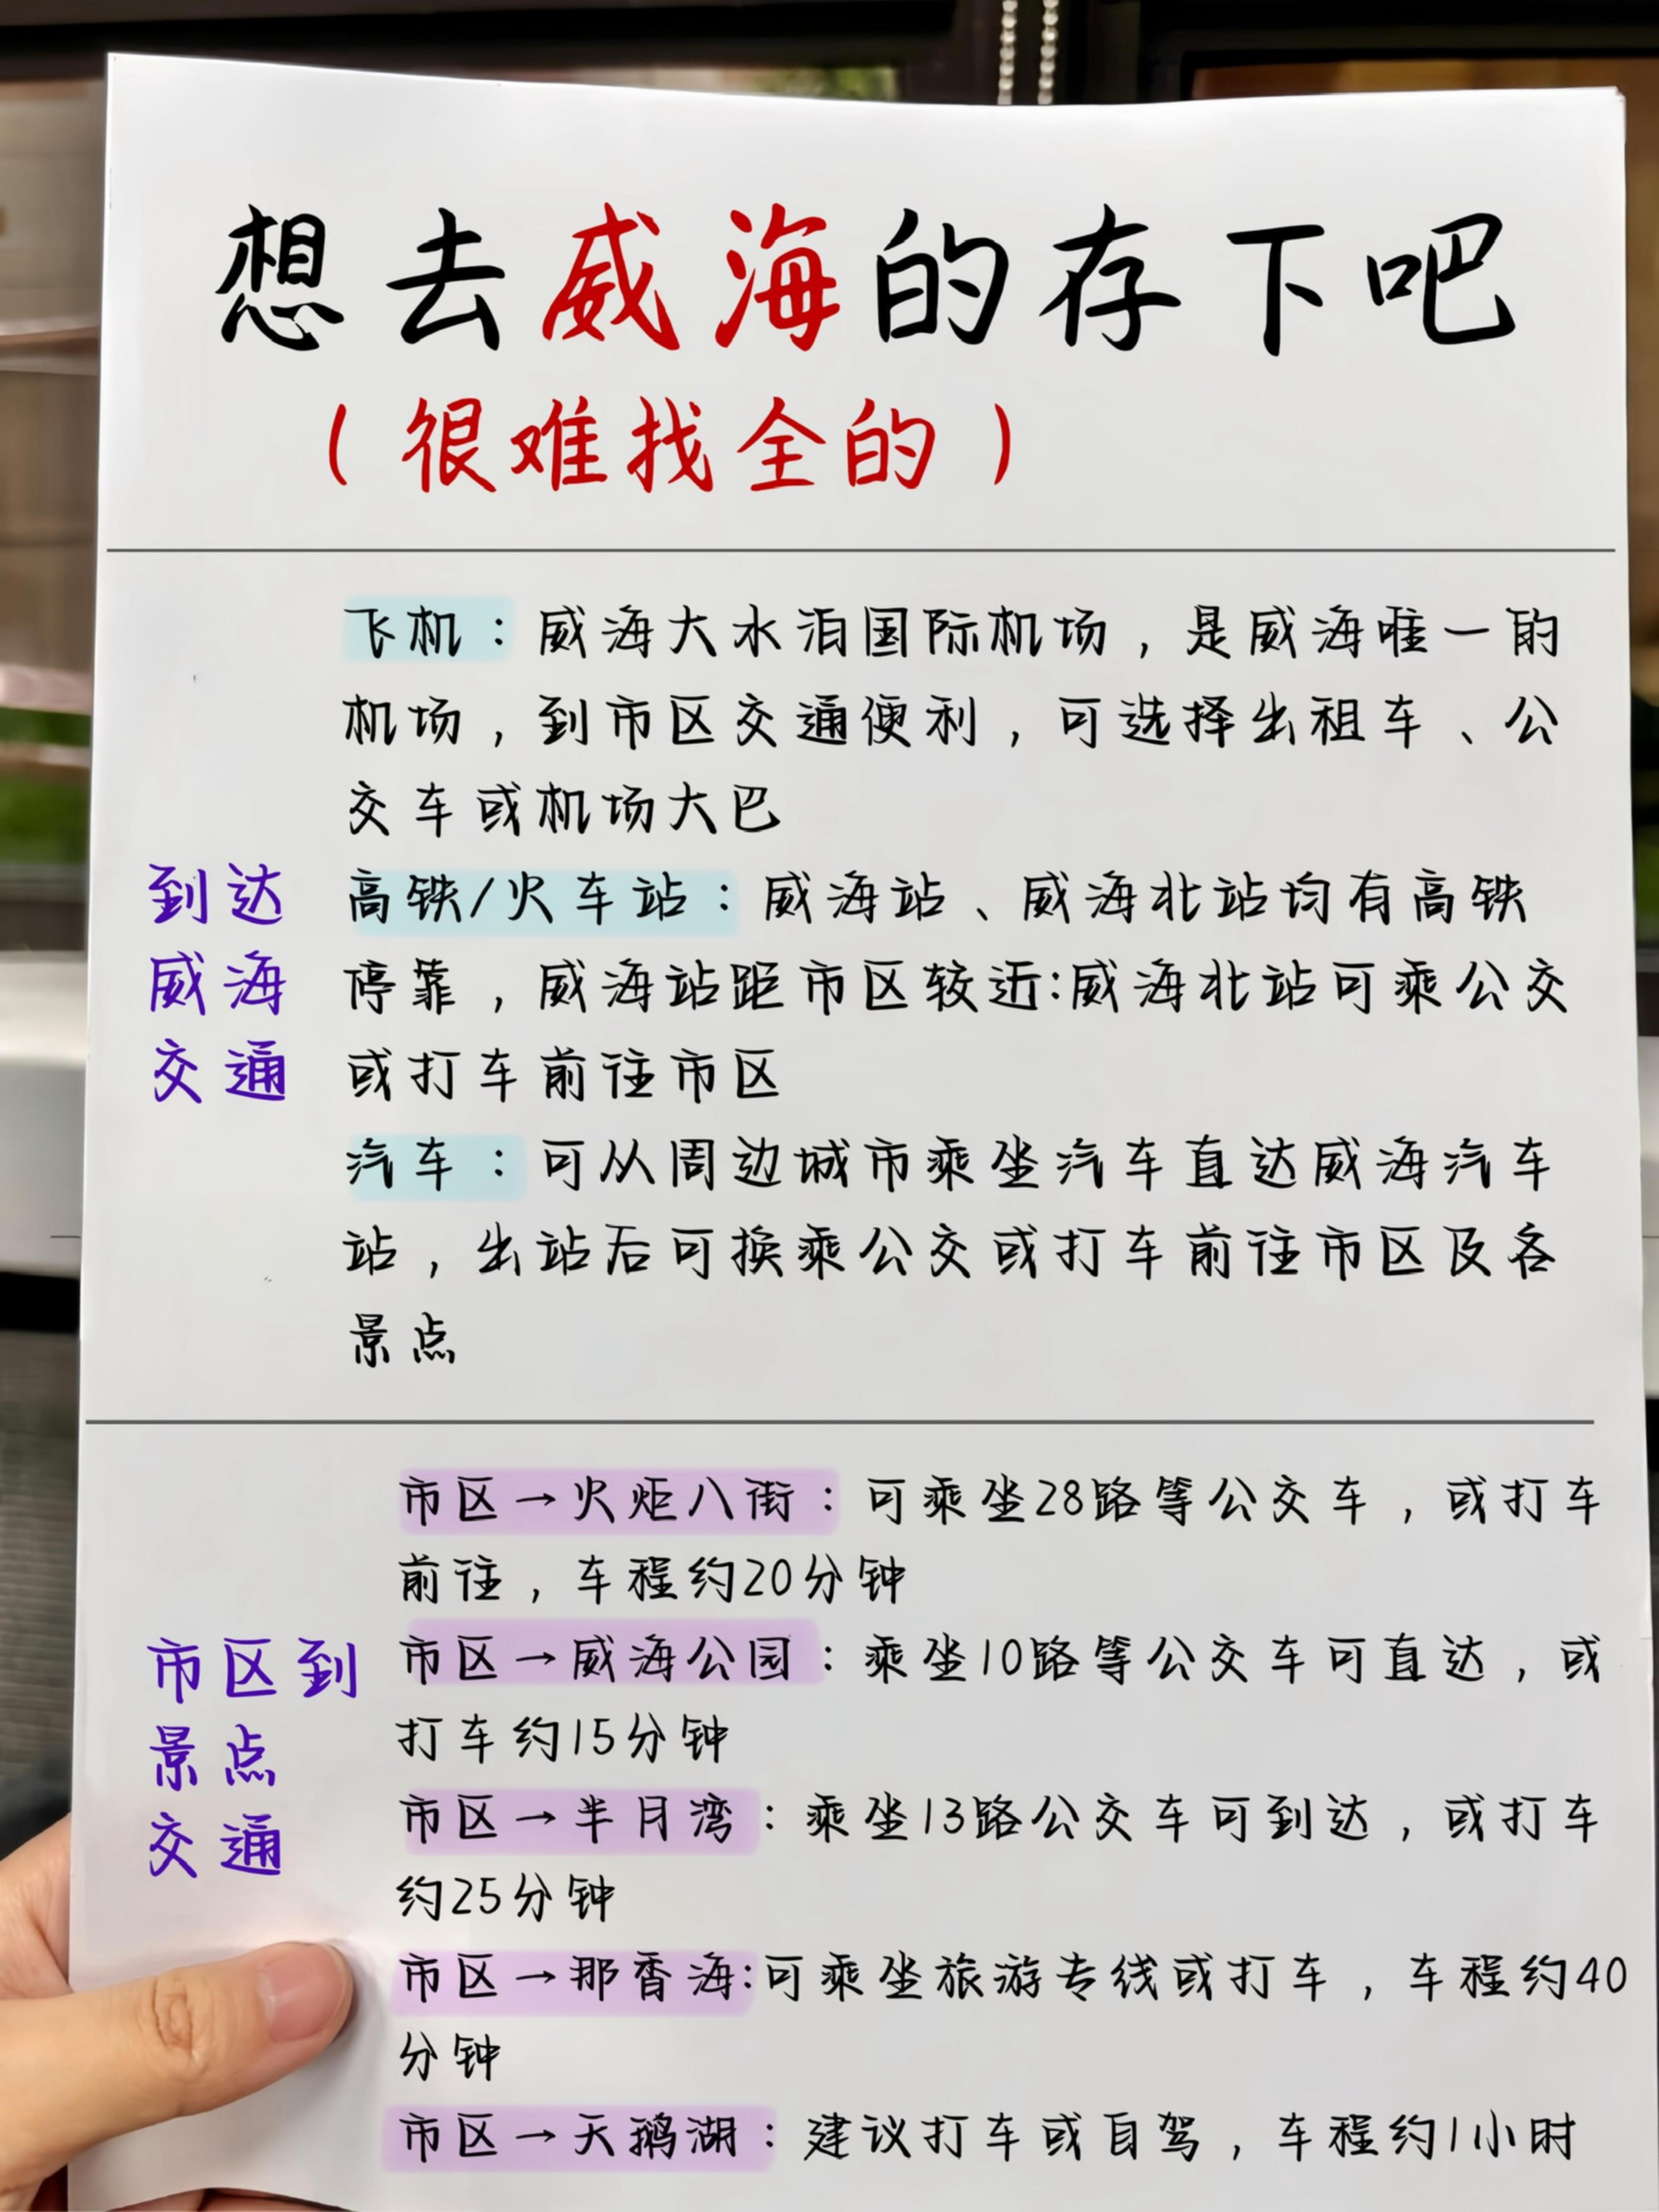 想去威海的存下吧
（很难找全的）
到达
威海
交通
飞机：威海大水泊国际机场，是威海唯一的
机场，到市区交通便利，可选择出租车、公
交车或机场大巴
高铁/火车站：威海站、威海北站均有高铁
停靠，威海站距市区较近:威海北站可乘公交
或打车前往市区
汽车：可从周边城市乘坐汽车直达威海汽车
站，出站后可换乘公交或打车前往市区及各
景点
市区到
景点
交通
市区→火炬八街：可乘坐28路等公交车，或打车
前往，车程约20分钟
市区→威海公园：乘坐10路等公交车可直达，或
打车约15分钟
市区→半月湾：乘坐13路公交车可到达，或打车
约25分钟
市区→那香海:可乘坐旅游专线或打车，车程约40
分钟
市区→天鹅湖：建议打车或自驾，车程约1小时